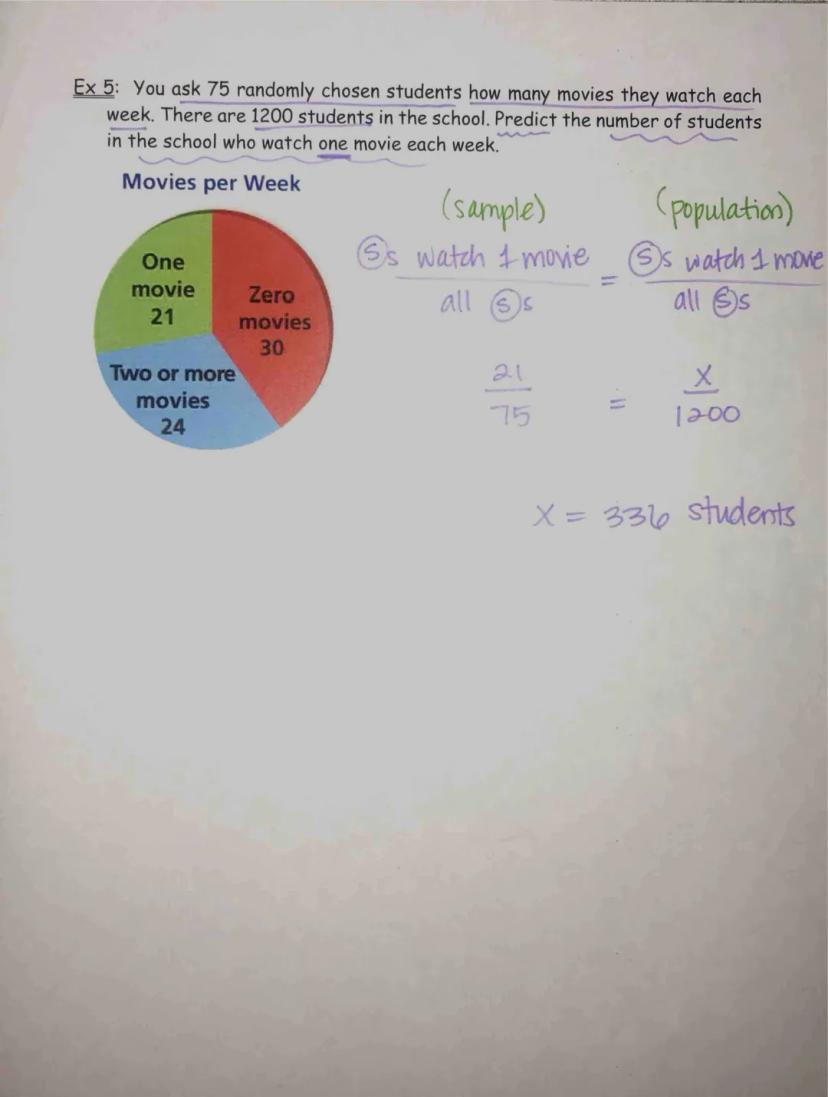 Ex 5: You ask 75 randomly chosen students how many movies they watch each
week. There are 1200 students in the school. Predict the number of students
in the school who watch one movie each week.
Movies per Week
One
movie
21
Zero
movies
30
Two or more
movies
24
(sample)
(population)
Ss watch 1 movie = Ss watch 1 movie
all Ss
all Ss
21 = X
75
1200
X = 336 students